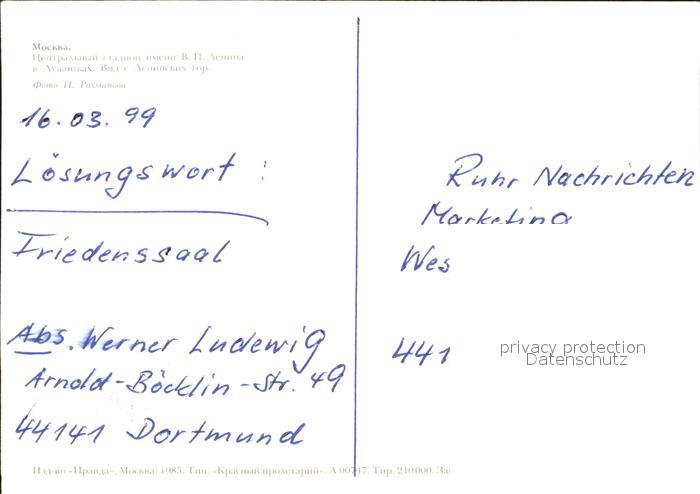 Москва.
Центральный стадион имени В. И. Ленина
в Лужниках. Вид с Ленинских гор.
Фото И. Рахманова
16.03.99
Lösungswort :
Friedenssaal
Abs. Werner Ludewig
Arnold-Böcklin-Str. 49
44141 Dortmund
Изд-во «Правда». Москва. 1985. Тип. «Красный пролетарий». А 00747. Тир. 210000. За
Ruhr Nachrichten
Marketing
Wes
441
privacy protection
Datenschutz